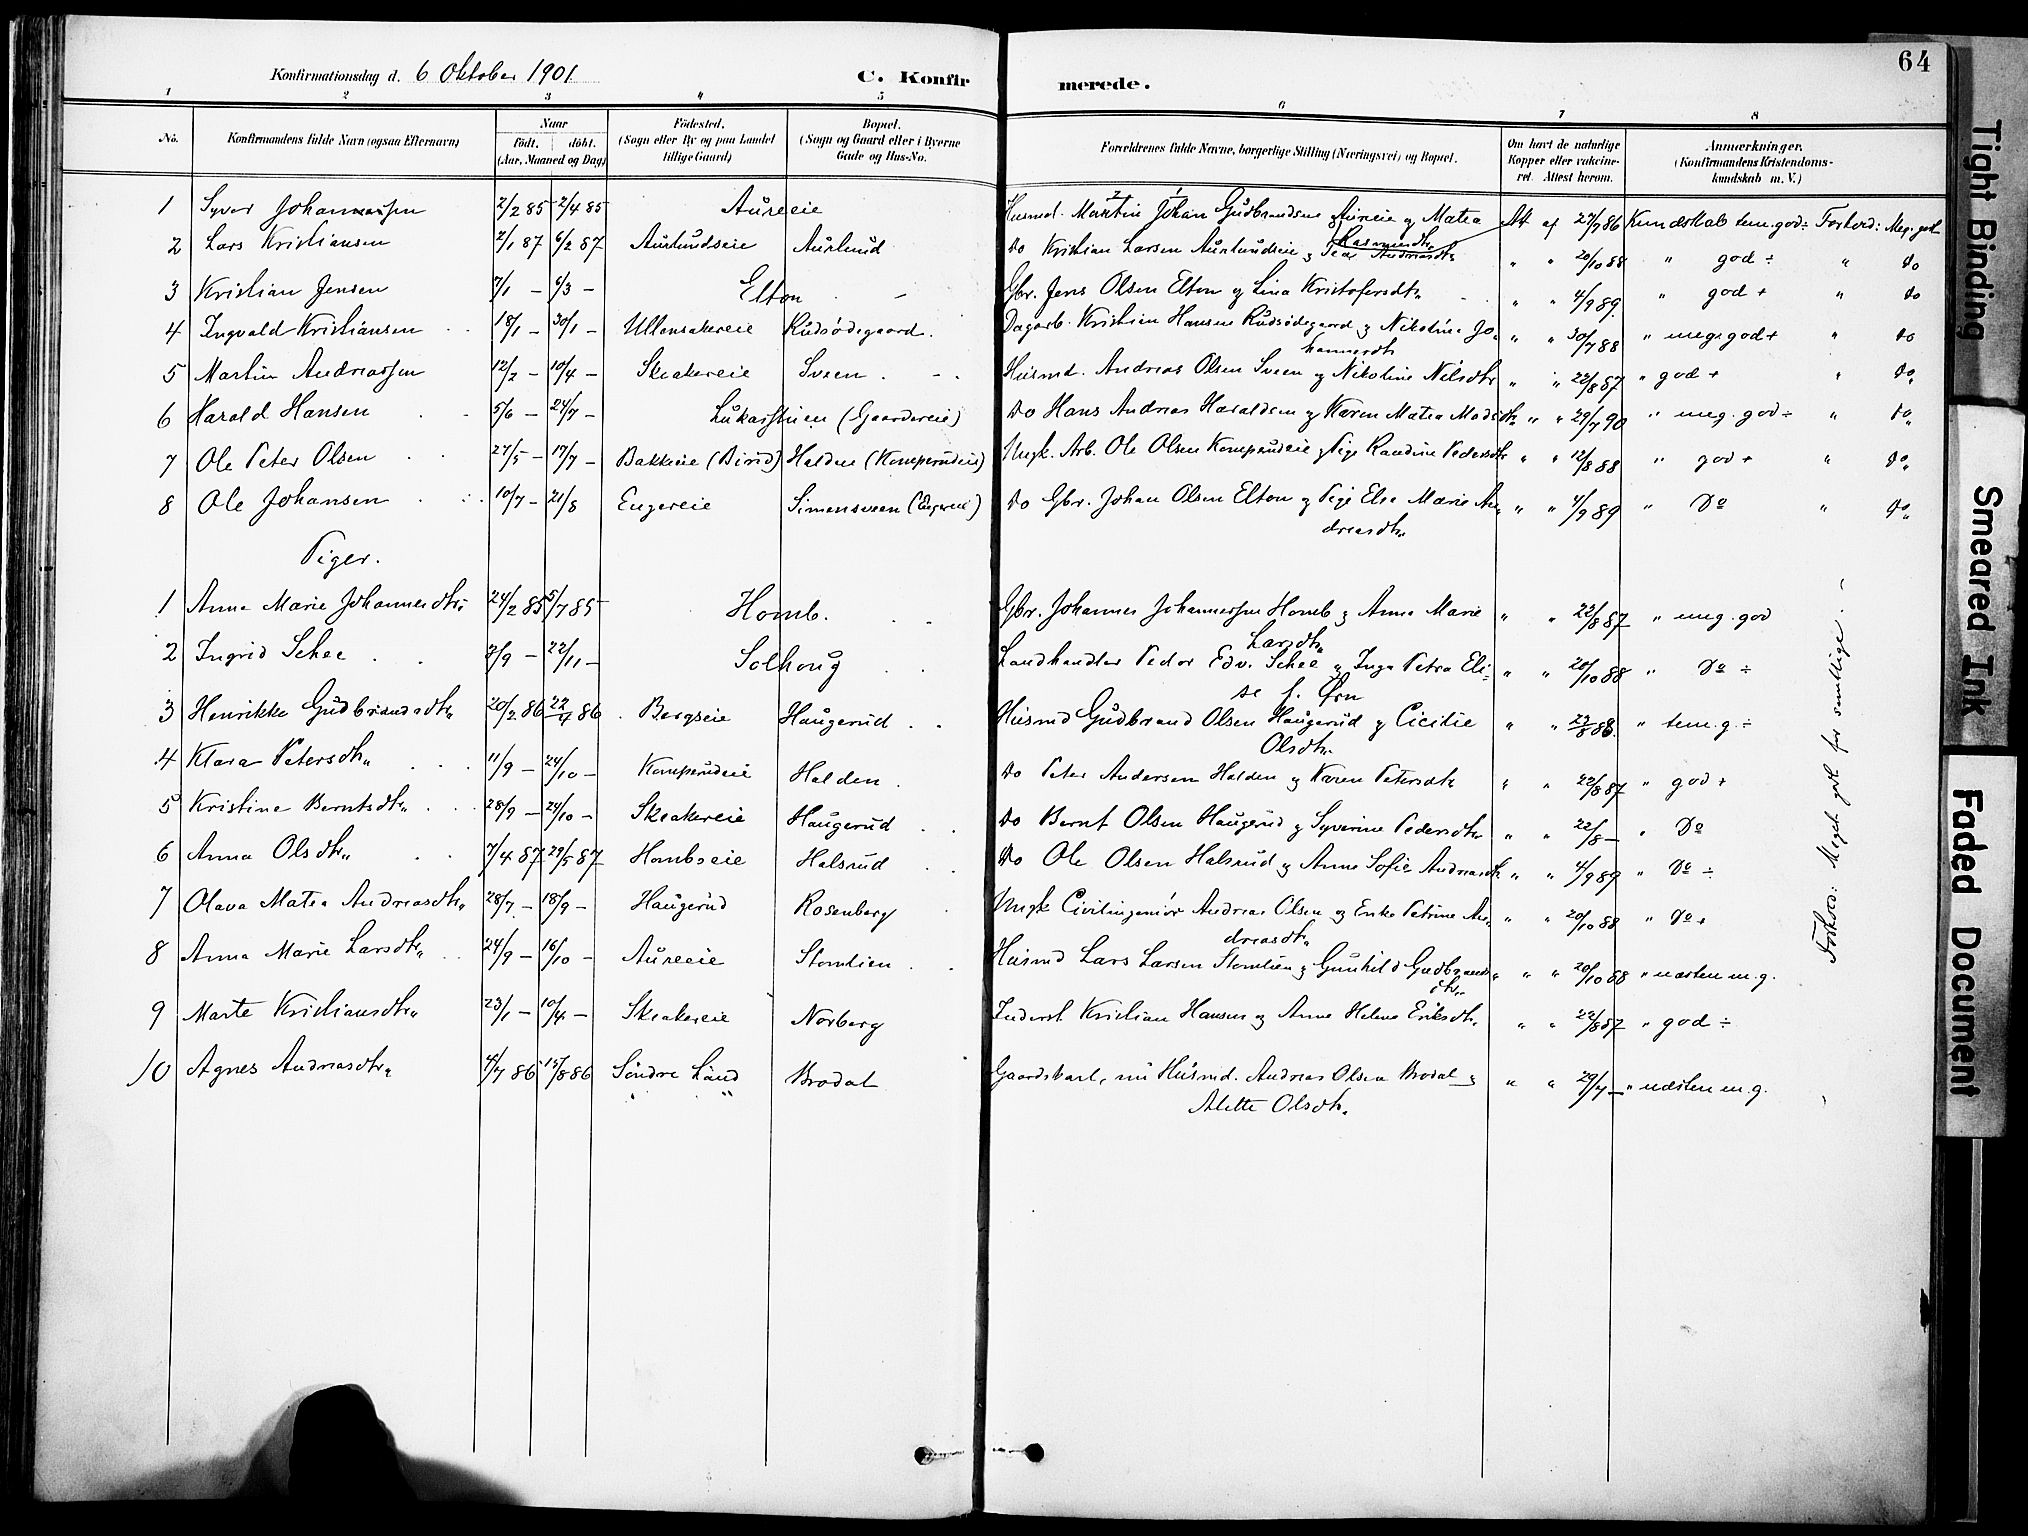 Konfirmationsdag d. 6 Oktober 1901 C. Konfir merede. 64
1 2 3 4 5 6 7 8
No. Konfirmandens fulde Navn (ogsaa Efternavn) Naar født. døbt. (Aar, Maaned og Dag) Födested. (Sogn eller By og paa Landet tillige Gaard) Bopæl. (Sogn og Gaard eller i Byerne Gade og Hus-No. Forældrenes fulde Navne, borgerlige Stilling (Næringsvei) og Bopæl. Om havt de naturlige Kopper eller vakcineret. Attest herom. Anmærkninger. (Konfirmandens Kristendomskundskab m. V.)
1 Syver Johannessen 2/2 85 2/4 85 Aureeie Husmd. Martin Johan Gudbrandsen Aureie og Matea Rasmusdtr Att af 27/7 86 Kundskab tem. god ÷ Forhord: Meg. godt
2 Lars Kristiansen 2/1 87 6/2 87 Aurlundseie Aurlund Do Kristian Larsen Aurlundseie og Andreasdtr " " 20/10 88 " god ÷ " Do
3 Kristian Jensen 7/1 – 6/3 – Elton Gbr. Jens Olsen Elton og Lina Kristofersdtr " " 4/9 89. " god + " Do
4 Ingvald Kristiansen 18/1 – 30/1 – Ullensakereie Rudsødegaard. Dagarb. Kristian Hansen Rudsødegaard og Nikoline Jo-
hannesdtr " " 30/7 88 " meg. god + " Do
5 Martin Andreassen 12/2 – 10/4 – Skakereie Sveen. Husmd. Andreas Olsen Sveen og Nikoline Nilsdtr " " 22/8 87 " god + " Do
6 Harald Hansen 5/6 – 24/7 – Lukasstuen (Gaardereie) Do Hans Andreas Haraldsen og Karen Matea Madsdtr " " 29/7 90 " meg. god ÷ " Do
7 Ole Peter Olsen 27/5 – 17/7 – Bakkeie (Birid) Halden (Komperudeie) Ungk. Arb. Ole Olsen Komperudeie og Pige Randine Pedersdtr " " 12/8 88 " god + " Do
8 Ole Johansen 10/7 – 21/8 Engereie Simensveen (Engereie) Do Gbr. Johan Olsen Elton og Pige Else Marie An-
dreasdtr. " " 4/9 89 " Do " Do
Piger.
1 Anna Marie Johannesdtr. 24/2 85 5/7 85 Homb. Gbr. Johannes Johannessen Homb og Anna Marie
Larsdtr " " 22/8 87 " meg. god
2 Ingrid Schee 7/9 – 22/11 – Solhoug Landhandler Peder Edv. Schee og Inga Petra Eli-
se f. Ørn " " 20/10 88 " Do ÷
3 Henrikke Gudbrandsdtr 20/2 86 22/4 86 Bergseie Haugerud Husmd Gudbrand Olsen Haugerud og Cicilie
Olsdtr. " " 23/8 88. " tem. g. ÷
4 Klara Petersdtr 11/9 – 24/10 – Komperudeie Halden Do Peter Andersen Halden og Karen Petersdtr " " 22/8 87 " god +
5 Kristine Berntsdtr. 28/9 – 24/10 – Skakereie Haugerud Do Bernt Olsen Haugerud og Syverine Pedersdtr " " 22/8 – " Do
6 Anna Olsdtr. 7/4 87 29/5 87 Hombseie Halsrud Do Ole Olsen Halsrud og Anne Sofie Andreasdtr " " 4/9 89 " Do ÷
7 Olava Matea Andreasdtr. 28/7 – 18/9 – Haugerud Rosenberg Ungk Civilingeniør Andreas Olsen og Enke Petrine An-
dreasdtr. " " 20/10 88 " Do +
8 Anna Marie Larsdtr. 24/9 – 16/10 – Aureeie Stomlien Husmd Lars Larsen Stomlien og Gunhild Gudbrands-
dtr. " " 20/10 88 " næsten m. g.
9 Marte Kristiansdtr. 23/1 – 10/4 – Skakereie Norberg Inderst Kristian Hansen og Anne Helene Eriksdtr. " " 22/8 87 " god ÷
10 Agnes Andreasdtr. 4/7 86 15/8 86 Söndre Land Brodal Gaardskarl, nu Husmd. Andreas Olsen Brodal og
Alette Olsdtr. " " 29/7 – " næsten m. g.
Forhord: Meget godt for samtlige. –
Tight Binding
Smeared Ink
Faded Document